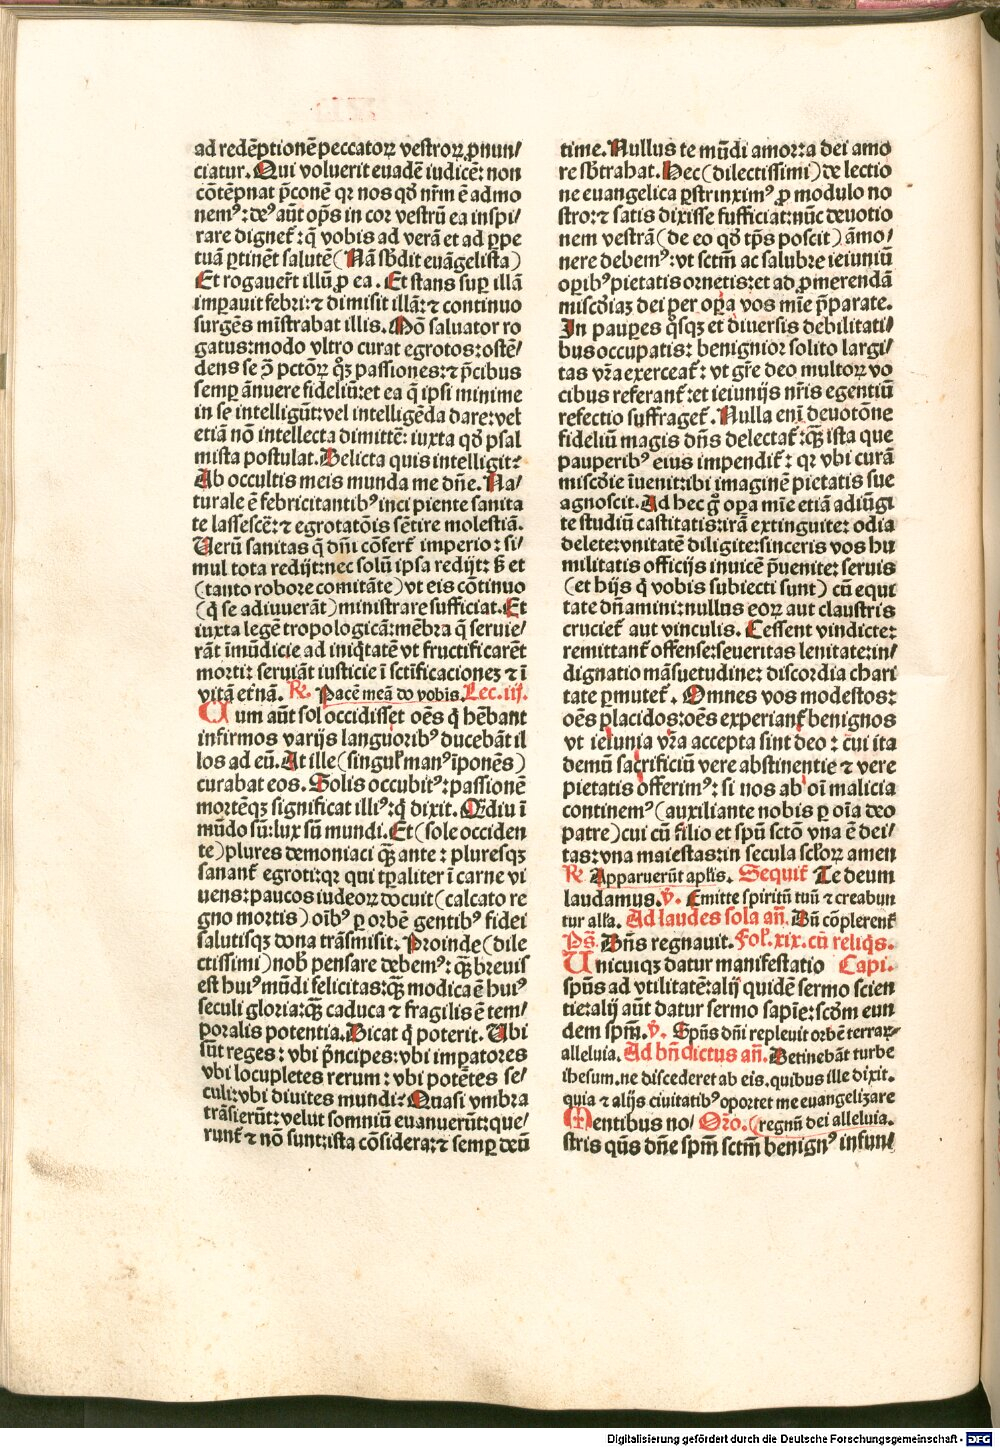 ad redēptionē peccatoꝝ vestroꝝ ꝓnun/
ciatur. Qui voluerit euadē iudicē: non
cōtēpnat p̄conē qꝛ nos qđ nr̄m ē admo
nemꝰ: deꝰ aūt op̄s in cor vestrū ea inspi/
rare dignet̄: q̄ vobis ad verā et ad ꝑpe
tuā ꝑtinēt salutē (Nā sb̄dit euāgelista)
Et rogauer̄t illū ꝓ ea. Et stans suꝑ illā
imꝑauit febri: ⁊ dimisit illā: ⁊ continuo
surgēs mīstrabat illis. Nō saluator ro
gatus: modo vltro curat egrotos: ostē/
dens se ꝓ pctōꝝ qͦꝫ passiones: ⁊ p̄cibus
semꝑ ānuere fideliū: et ea q̄ ipsi minime
in se intelligūt: vel intelligēda dare: vel
etiā nō intellecta dimittē: iuxta qđ psal
mista postulat. Delicta quis intelligit:
Ab occultis meis munda me dn̄e. Na/
turale ē febricitantibꝰ inci piente sanita
te lassescē: ⁊ egrotatōis sētire molestiā.
Uerū sanitas q̄ dn̄i cōfert̄ imperio: si/
mul tota redijt: nec solū ipsa redijt: s̄ et
(tanto robore comitāte) vt eis cōtinuo
(q̄ se adiuuerāt) ministrare sufficiat. Et
iuxta legē tropologicā: mēbra q̄ seruie/
rāt īmūdicie ad iniqͥtatē vt fructificarēt
morti: seruiāt iusticie ī sctīficationeꝫ ⁊ ī
vitā et̄nā. R̄. Pacē meā do vobis. Lec. iij.
Cum aūt sol occidisset oēs q̄ hēbant
infirmos varijs languoribꝰ ducebāt il
los ad eū. At ille (singul̄ manꝰ īponēs)
curabat eos. Solis occubitꝰ: passionē
mortēqꝫ significat illiꝰ: q̄ dixit. Qͣdiu ī
mūdo sū: lux sū mundi. Et (sole occiden
te) plures demoniaci qͣꝫ ante: pluresqꝫ
sanant̄ egroti: qꝛ qui tꝑaliter ī carne vi
uens: paucos iudeoꝝ docuit (calcato re
gno mortis) oībꝰ ꝑ orbē gentibꝰ fidei
salutisqꝫ dona trāsmisit. Proinde (dile
ctissimi) nob̄ pensare debemꝰ: qͣꝫ breuis
est huiꝰ mūdi felicitas: qͣꝫ modica ē huiꝰ
seculi gloria: qͣꝫ caduca ⁊ fragilis ē tem/
ꝑoralis potentia. Dicat q̄ poterit. Ubi
sūt reges: vbi p̄ncipes: vbi imꝑatores
vbi locupletes rerum: vbi potētes se/
culi: vbi diuites mundi: Quasi vmbra
trāsierūt: velut somniū euanuerūt: que/
runt̄ ⁊ nō sunt: ista cōsidera: ⁊ semꝑ deū
time. Nullus te mūdi amor: a dei amo
re sb̄trabat. Hec (dilectissimi) de lectio
ne euangelica ꝑstrinximꝰ ꝓ modulo no
stro: ⁊ satis dixisse sufficiat: nūc deuotio
nem vestrā (de eo qđ tp̄s poscit) āmo/
nere debemꝰ: vt sctm̄ ac salubre ieiuniū
oꝑibꝰ pietatis ornetis: et ad ꝓmerendā
miscd̄iaꝫ dei per oꝑa vos mīe p̄parate.
In pauꝑes qͦsqꝫ et diuersis debilitati/
bus occupatis: benignior solito largi/
tas vr̄a exerceat̄: vt gr̄e deo multoꝝ vo
cibus referant̄: et ieiunijs nr̄is egentiū
refectio suffraget̄. Nulla enī deuotōne
fideliū magis dn̄s delectat̄: qͣꝫ ista que
pauperibꝰ eius impendit̄: qꝛ vbi curā
miscd̄ie īuenit: ibi imaginē pietatis sue
agnoscit. Ad hec gͦ oꝑa mīe etiā adiūgi
te studiū castitatis: irā extinguite: odia
delete: vnitatē diligite: sinceris vos hu
militatis officijs inuicē p̄uenite: seruis
(et hijs q̄ vobis subiecti sunt) cū equi
tate dn̄amini: nullus eoꝝ aut claustris
cruciet̄ aut vinculis. Cessent vindicte:
remittant̄ offense: seueritas lenitate: in/
dignatio māsuetudine: discordia chari
tate ꝑmutet̄. Omnes vos modestos:
oēs placidos: oēs experiant̄ benignos
vt ieiunia vr̄a accepta sint deo: cui ita
demū sacrificiū vere abstinentie ⁊ vere
pietatis offerimꝰ: si nos ab oī malicia
continemꝰ (auxiliante nobis ꝑ oīa deo
patre) cui cū filio et spū sctō vna ē dei/
tas: vna maiestas: in secula scl̄oꝝ amen
R̄ Apparuerūt apl̄is. Sequit̄ Te deum
laudamus. v̄. Emitte spiritū tuū ⁊ creabun
tur alla. Ad laudes sola an̄. Dū cōplerent̄
Ps̄. Dn̄s regnauit. Fol̄. xix. cū reliqͥs.
Unicuiqꝫ datur manifestatio Capi.
spūs ad vtilitatē: alij quidē sermo scien
tie: alij aūt datur sermo sapīe: scd̄m eun
dem spm̄. v̄. Spūs dn̄i repleuit orbē terraꝝ
alleluia. Ad bn̄dictus an̄. Detinebāt turbe
ihesum. ne discederet ab eis. quibus ille dixit.
quia ⁊ alijs ciuitatibꝰ oportet me euangelizare
Mentibus no/ Or̄o. (regnū dei alleluia.
stris qūs dn̄e spm̄ sctm̄ benignꝰ infun/
Digitalisierung gefördert durch die Deutsche Forschungsgemeinschaft - DFG